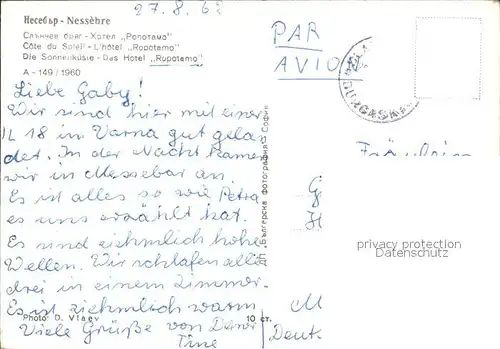 27.8.62
Несебър - Nessèbre
Слънчев бряг - Хотел „Ропотамо"
Côte du Soleil - L'hôtel „Ropotamo"
Die Sonnenküste - Das Hotel „Ropotamo"
А - 149 / 1960
PAR
AVION
Liebe Gaby!
Wir sind hier mit einer
IL 18 in Varna gut gelan
det. In der Nacht kamen
wir in Messebar an.
Es ist alles so wie Petra
es uns erzählt hat.
Es sind ziehmlich hohe
Wellen. Wir schlafen alle
drei in einem Zimmer.
Es ist ziehmlich warm
Photo: D. Vlaev
10 ст.
Viele Grüße von Deiner
Tine
ДП „Българска фотография" София
Fräulein
G
H
M
Deut
privacy protection
Datenschutz